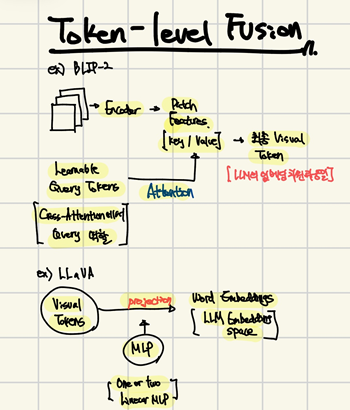 Token-level Fusion
ex) BLIP-2
Encoder
Patch
Features
[Key / Value]
최종 Visual
Token
[LLM의 임베딩 차원과 동일]
Learnable
Query Tokens
Attention
Cross-Attention에서
Query 역할
ex) LLaVA
Visual
Tokens
projection
Word Embeddings
LLM Embedding
space
MLP
One or two
Linear MLP